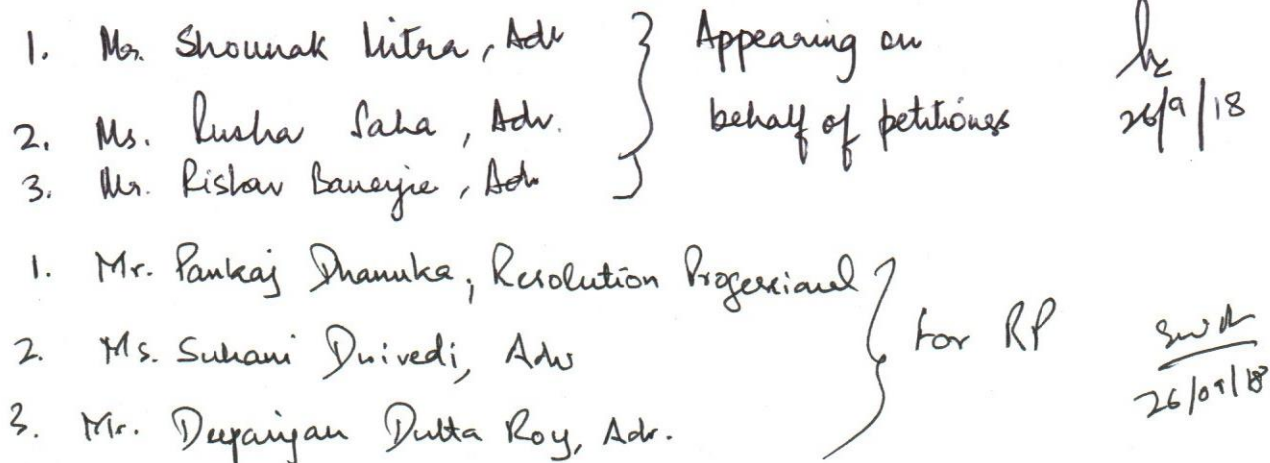 1. Mr. Shounak Mitra, Adv
2. Ms. Rusha Saha, Adv.
3. Mr. Rishav Banerjie, Adv
Appearing on
behalf of petitioners
26/9/18
1. Mr. Pankaj Dhanuka, Resolution Professional
2. Ms. Suhani Dwivedi, Adv
3. Mr. Deepanjan Dutta Roy, Adv.
For RP
26/09/18